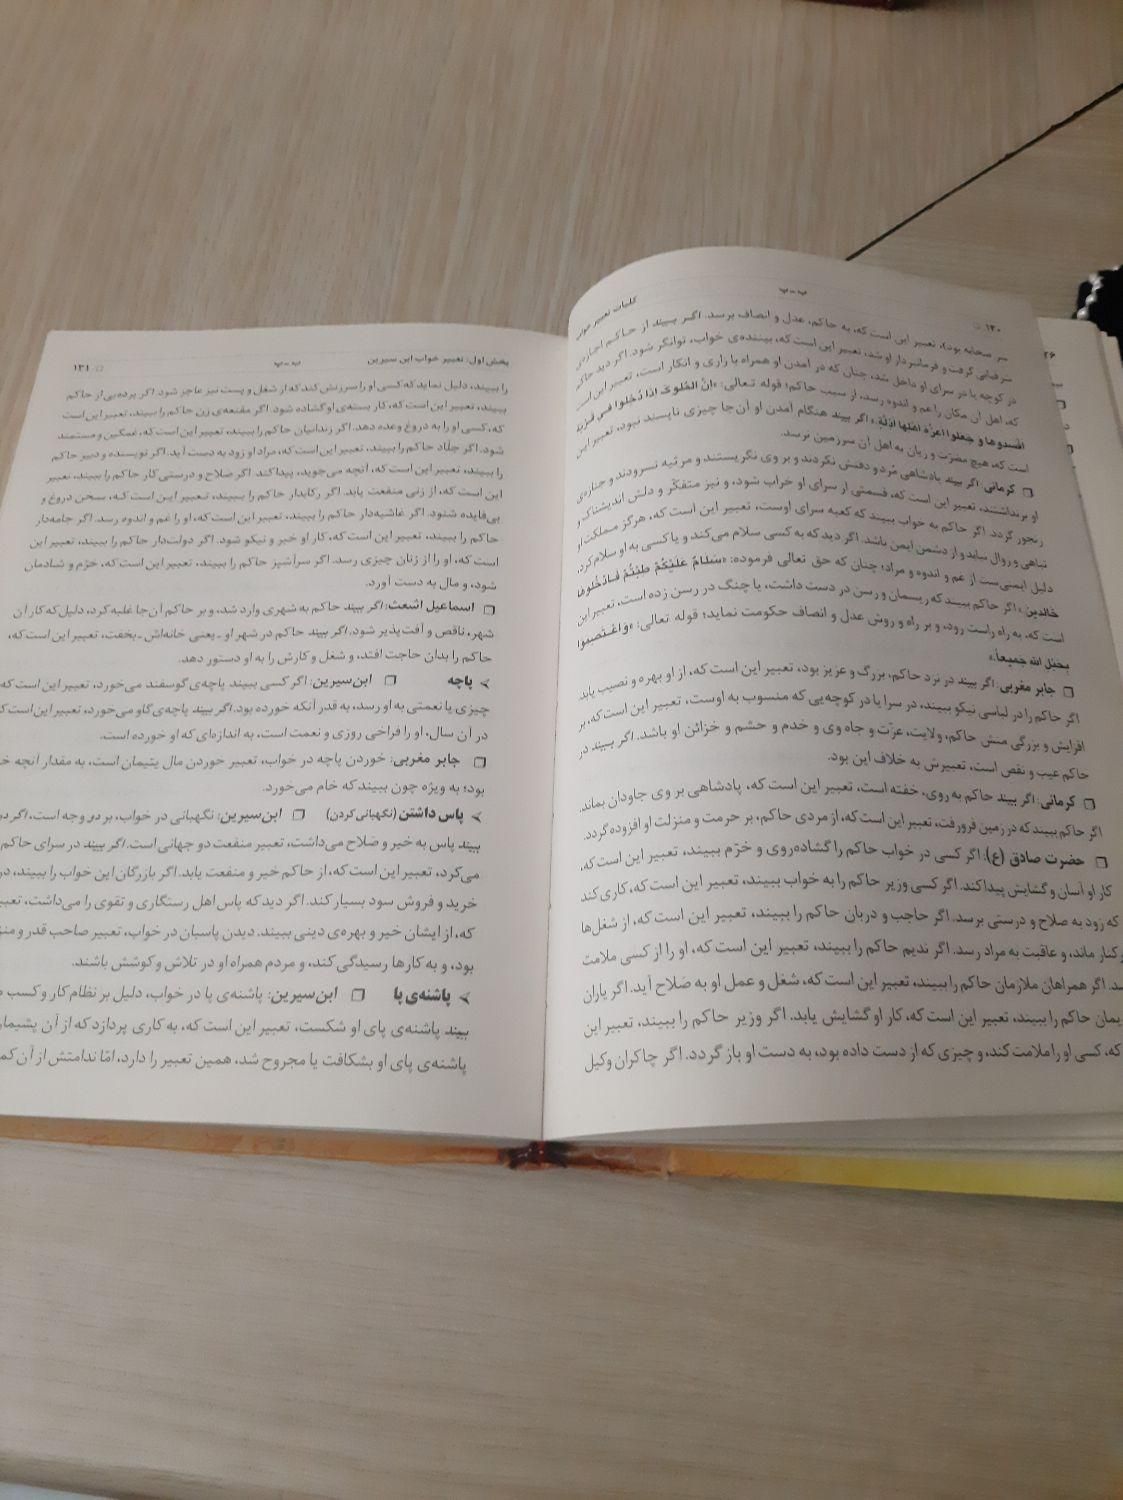 ۱۳۰
ب ـ پ
کلیات تعبیر خواب
سر صحابه بود)، تعبیر این است که، به حاکم، عدل و انصاف برسد. اگر بیند از حاکم اجازه‌ی
سرفتابی گرفت و فرمانبردار او شد، تعبیر این است که، بیننده‌ی خواب، توانگر شود. اگر دید حاکم
در کوچه یا در سرای او داخل شد، چنان که در آمدن او همراه با زاری و انکار است، تعبیر این است
که، اهل آن مکان را غم و اندوه رسد، از سبب حاکم؛ قوله تعالی: «انّ المُلوکَ اذا دَخَلوا فی قریه
افسدوها و جعلوا اعزّه اهلها اذلّة.» اگر بیند هنگام آمدن او آن‌جا چیزی ناپسند نبود، تعبیر این
است که، هیچ مضرّت و زیان به اهل آن سرزمین نرسد.
کرمانی: اگر بیند پادشاهی مُرد و دفنش نکردند و بر وی نگریستند و مرثیه نسرودند و جنازه‌ی
او برنداشتند، تعبیر این است که، قسمتی از سرای او خراب شود، و نیز متفکّر و دلش اندیشناک و
رنجور گردد. اگر حاکم به خواب ببیند که کعبه سرای اوست، تعبیر این است که، هرگز مملکت او
تباهی و زوال نیابد و از دشمن ایمن باشد. اگر دید که به کسی سلام می‌کند و یا کسی به او سلام کرد
دلیل ایمنی‌ست از غم و اندوه و مراد؛ چنان که حق تعالی فرموده: «سَلامٌ عَلَیکُمْ طِبْتُمْ فَادْخُلوها
خالدین.» اگر حاکم ببیند که ریسمان و رسن در دست داشت، یا چنگ در رسن زده است، تعبیر این
است که، به راه راست رود، و بر راه و روش عدل و انصاف حکومت نماید؛ قوله تعالی: «وَاعْتَصِمُوا
بِحَبْلِ الله جَمیعاً.»
جابر مغربی: اگر بیند در نزد حاکم، بزرگ و عزیز بود، تعبیر این است که، از او بهره و نصیب یابد
اگر حاکم را در لباسی نیکو ببیند، در سرا یا در کوچه‌یی که منسوب به اوست، تعبیر این است‌که، بر
افزایش و بزرگی منش حاکم، ولایت، عزّت و جاه وی و خدم و حشم و خزائن او باشد. اگر بیند در
حاکم عیب و نقص است، تعبیرش به خلاف این بود.
کرمانی: اگر بیند حاکم به روی، خفته است، تعبیر این است که، پادشاهی بر وی جاودان بماند
اگر حاکم ببیند که در زمین فرو رفت، تعبیر این است‌که، از مردی حاکم، بر حرمت و منزلت او افزوده گردد.
حضرت صادق (ع): اگر کسی در خواب حاکم را گشاده‌روی و خرّم ببیند، تعبیر این است که،
کار او آسان و گشایش پیدا کند. اگر کسی وزیر حاکم را به خواب ببیند، تعبیر این است که، کاری کند
که زود به صلاح و درستی برسد. اگر حاجب و دربان حاکم را ببیند، تعبیر این است که، از شغل‌ها
کنار ماند، و عاقبت به مراد رسد. اگر ندیم حاکم را ببیند، تعبیر این است که، او را از کسی ملامت
رسد. اگر همراهان ملازمان حاکم را ببیند، تعبیر این است که، شغل و عمل او به صَلاح آید. اگر یاران
حاکم را ببیند، تعبیر این است که، کار او گشایش یابد. اگر وزیر حاکم را ببیند، تعبیر این
که، کسی او را ملامت کند، و چیزی که از دست داده بود، به دست او باز گردد. اگر چاکران وکیل
بخش اول: تعبیر خواب ابن سیرین
ب ـ پ
۱۳۱
را ببیند، دلیل نماید که کسی او را سرزنش کند که از شغل و پست نیز عاجز شود. اگر پرده‌یی از حاکم
ببیند، تعبیر این است که، کار بسته‌ی او گشاده شود. اگر مقنعه‌ی زن حاکم را ببیند، تعبیر این است
که، کسی او را به دروغ وعده دهد. اگر زندانبان حاکم را ببیند، تعبیر این است که، غمگین و مستمند
شود. اگر جلّاد حاکم را ببیند، تعبیر این است که، مراد او زود به دست آید. اگر نویسنده و دبیر حاکم
را ببیند، تعبیر این است که، آنچه می‌جوید، پیدا کند. اگر صلاح و درستی کار حاکم را ببیند، تعبیر
این است که، از زنی منفعت یابد. اگر رکابدار حاکم را ببیند، تعبیر این است که، سخن دروغ و
بی‌فایده شنود. اگر غاشیه‌دار حاکم را ببیند، تعبیر این است که، او را غم و اندوه رسد. اگر جامه‌دار
حاکم را ببیند، تعبیر این است که، کار او خیر و نیکو شود. اگر دولت‌دار حاکم را ببیند، تعبیر این
است که، او را از زنان چیزی رسد. اگر سرآشپز حاکم را ببیند، تعبیر این است که، خرّم و شادمان
شود، و مال به دست آورد.
اسماعیل اشعث: اگر بیند حاکم به شهری وارد شد، و بر حاکم آن‌جا غلبه کرد، دلیل که کار آن
شهر، ناقص و آفت‌پذیر شود. اگر بیند حاکم در شهر او ـ یعنی خانه‌اش ـ بخفت، تعبیر این است که،
حاکم را بدان حاجت افتد، و شغل و کارش را به او دستور دهد.
پاچه ابن‌سیرین: اگر کسی ببیند پاچه‌ی گوسفند می‌خورد، تعبیر این است که
چیزی یا نعمتی به او رسد، به قدر آنکه خورده بود. اگر بیند پاچه‌ی گاو می‌خورد، تعبیر این است که
در آن سال، او را فراخی روزی و نعمت است، به اندازه‌ای که او خورده است.
جابر مغربی: خوردن پاچه در خواب، تعبیر خوردن مال یتیمان است، به مقدار آنچه
بود؛ به ویژه چون ببیند که خام می‌خورد.
پاس داشتن (نگهبانی کردن) ابن‌سیرین: نگهبانی در خواب، بر دو وجه است، اگر
بیند پاس به خیر و صَلاح می‌داشت، تعبیر منفعت دو جهانی است. اگر بیند در سرای حاکم
می‌کرد، تعبیر این است که، از حاکم خیر و منفعت یابد. اگر بازرگان این خواب را ببیند، در
خرید و فروش سود بسیار کند. اگر دید که پاس اهل رستگاری و تقوی را می‌داشت، تعبیر
که، از ایشان خیر و بهره‌ی دینی ببیند. دیدن پاسبان در خواب، تعبیر صاحب قدر و
بود، و به کارها رسیدگی کند، و مردم همراه او در تلاش و کوشش باشند.
پاشنه‌ی پا ابن‌سیرین: پاشنه‌ی پا در خواب، دلیل بر نظام کار و کسب
بیند پاشنه‌ی پای او شکست، تعبیر این است که، به کاری پردازد که از آن پشیمان
پاشنه‌ی پای او بشکافت یا مجروح شد، همین تعبیر را دارد، امّا ندامتش از آن